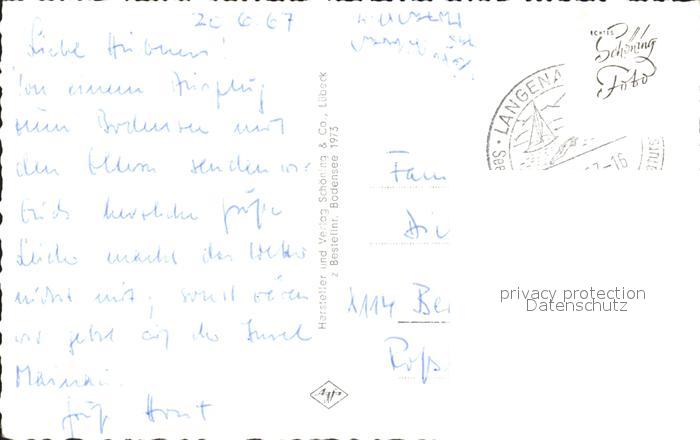 20.6.67
Liebe Hübners!
Von einem Ausflug
zum Bodensee mit
den Eltern senden wir
Euch herzliche Grüße
Leider macht das Wetter
nicht mit, sonst wären
wir jetzt auf der Insel
Mainau.
Gruß Horst
Hersteller und Verlag Schöning & Co., Lübeck
z Bestellnr. Bodensee 1973
Agfa
ECHTES
Schöning
Foto
LANGENA
-16
Fam
1114 Be
Roß
privacy protection
Datenschutz